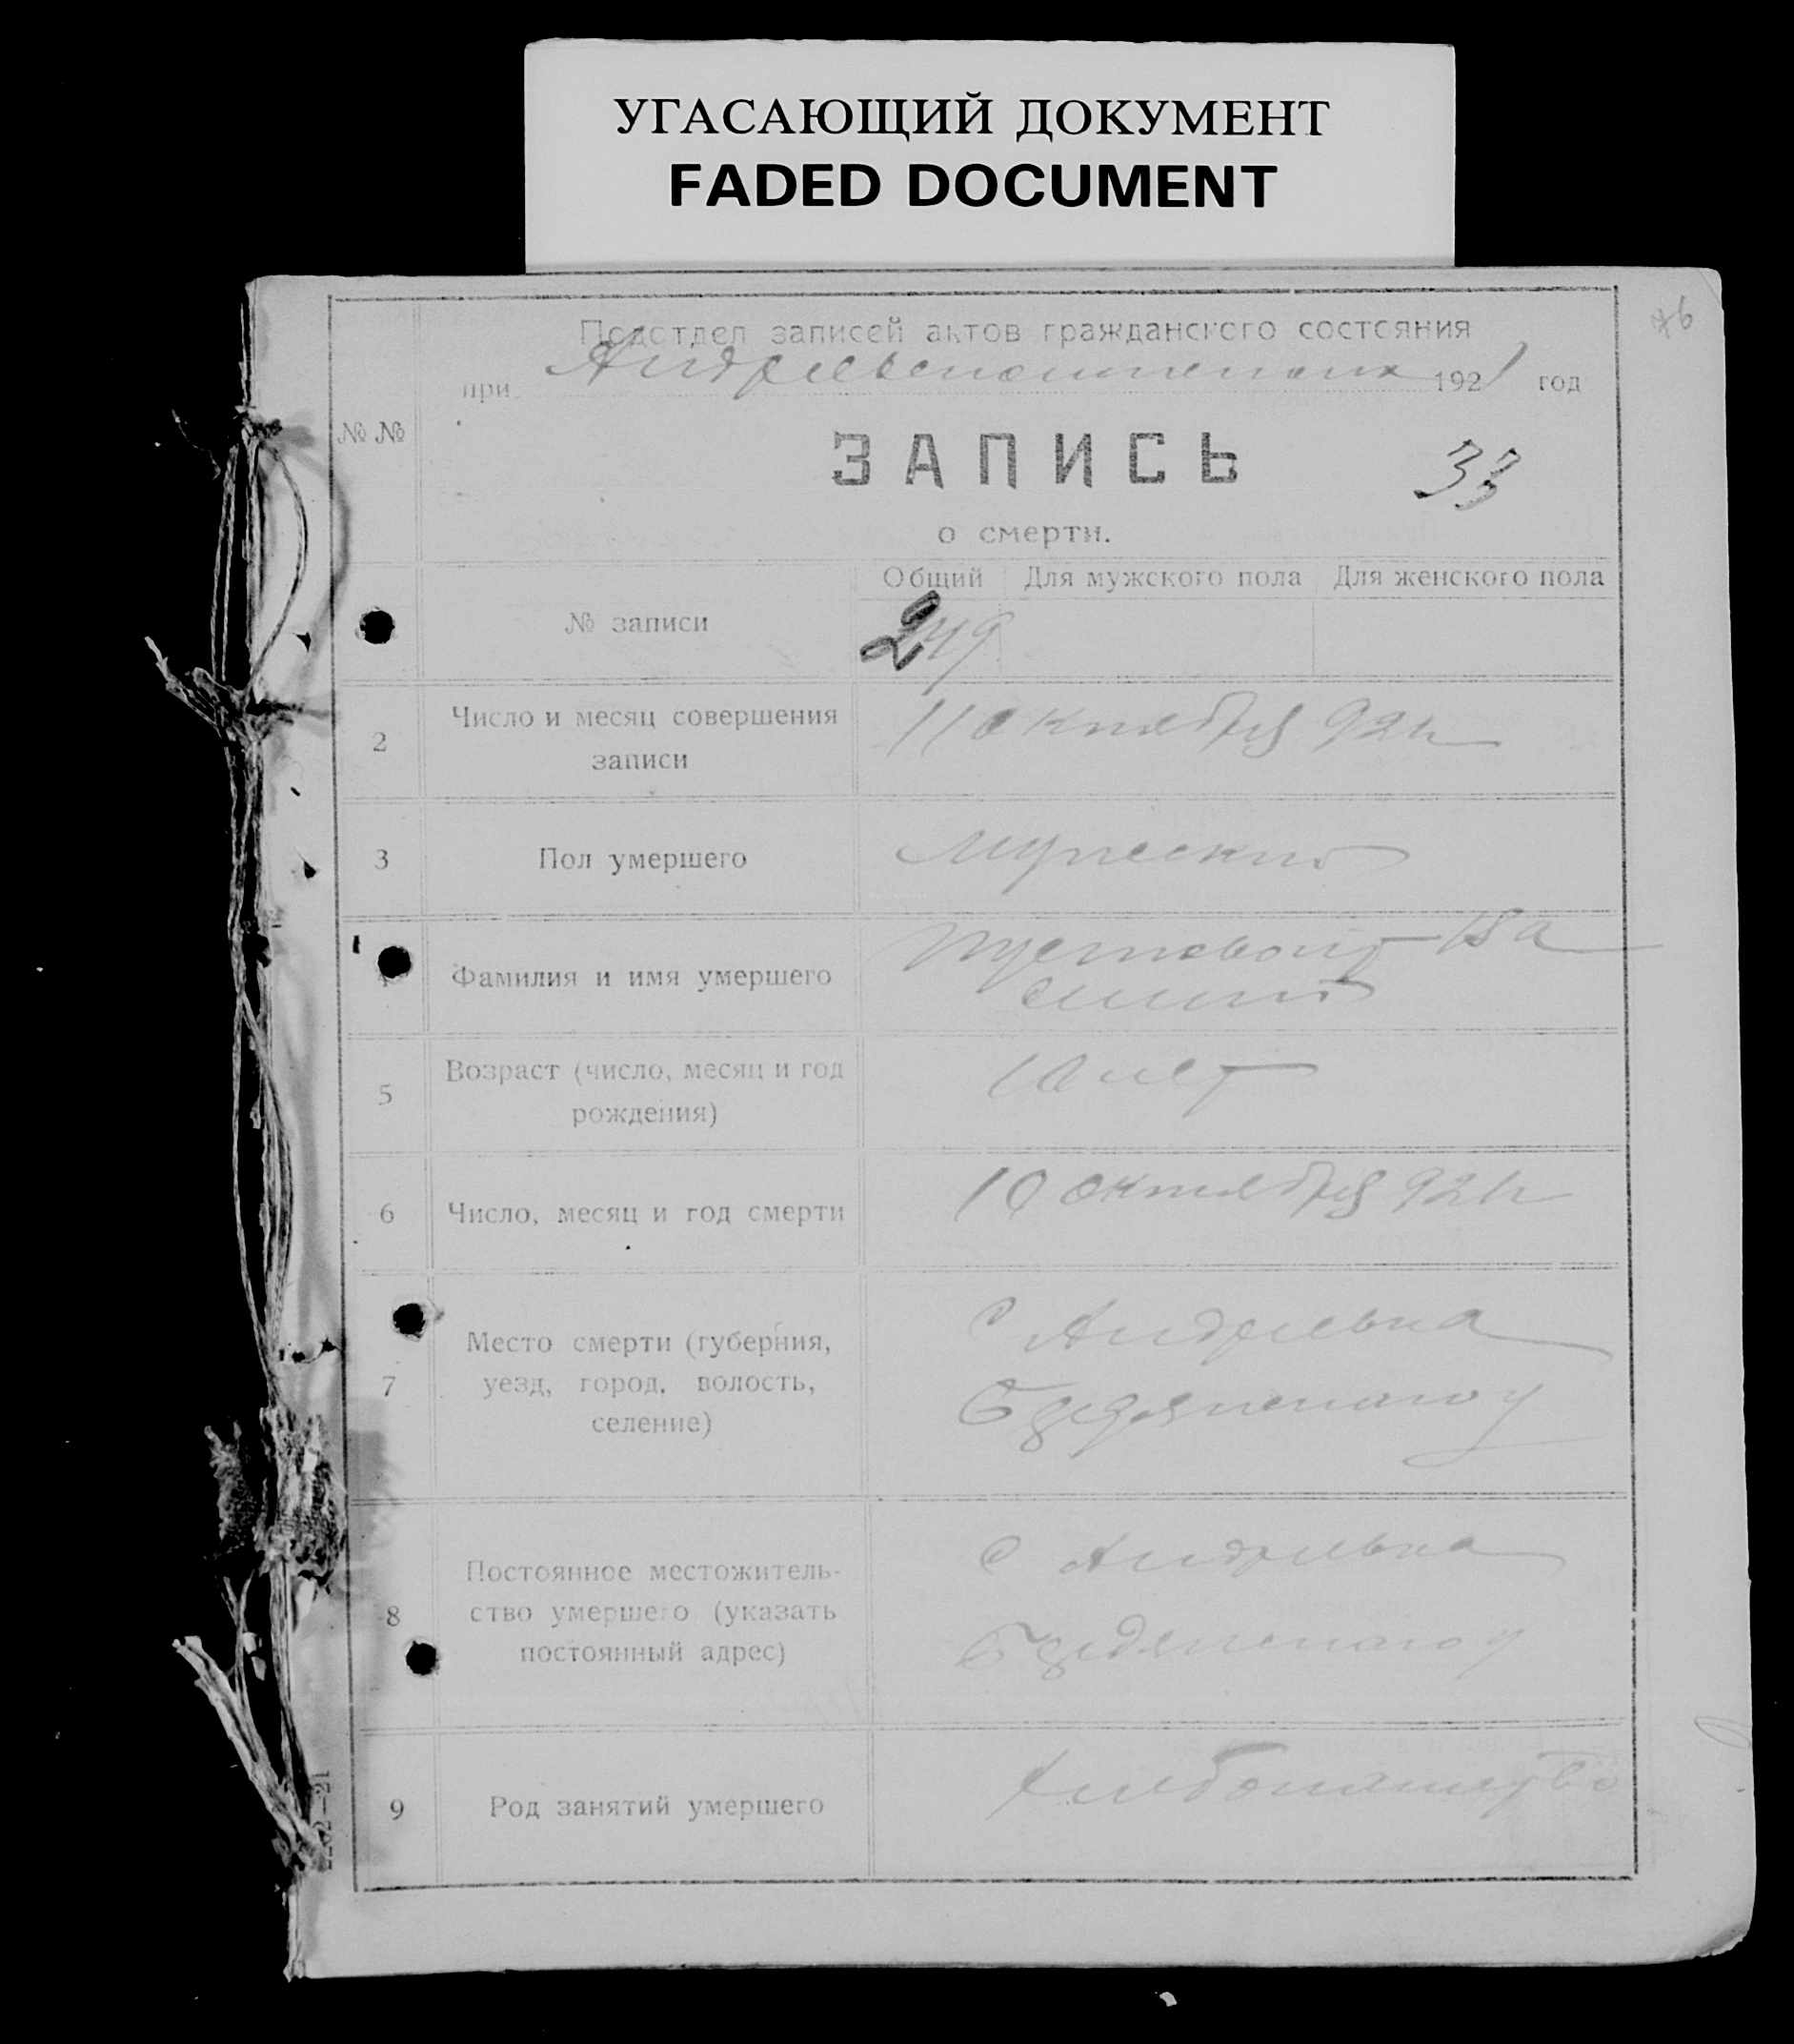 УГАСАЮЩИЙ ДОКУМЕНТ
FADED DOCUMENT
Подотдел записей актов гражданского состояния
при 1921 год
№ №
ЗАПИСЬ
33
о смерти.
Общий Для мужского пола Для женского пола
№ записи
249
2 Число и месяц совершения
записи
11 октября 921 г
3 Пол умершего
мужеский
Фамилия и имя умершего
Пустовойт Ва
силий
5 Возраст (число, месяц и год
рождения)
10 лет
6 Число, месяц и год смерти
10 октября 921 г
7 Место смерти (губерния,
уезд, город, волость,
селение)
С Андреевка
Бердянского у
8 Постоянное местожитель-
ство умершего (указать
постоянный адрес)
С Андреевка
Бердянского у
9 Род занятий умершего
Хлебопашество